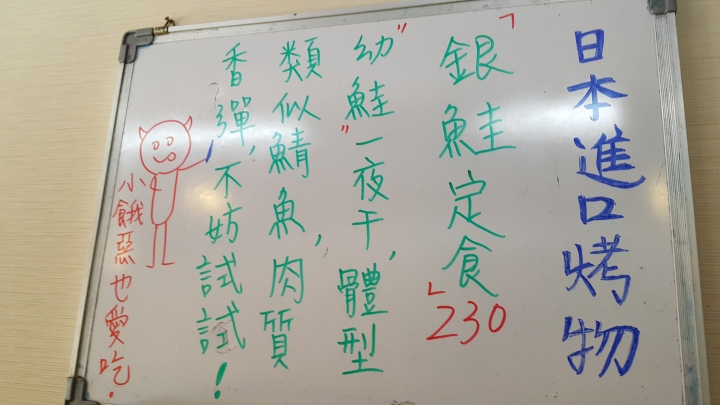 日本進口烤物
「銀鮭定食」230
"幼鮭"一夜干,體型
類似鯖魚,肉質
香彈,不妨試試!
小餓惡也愛吃.